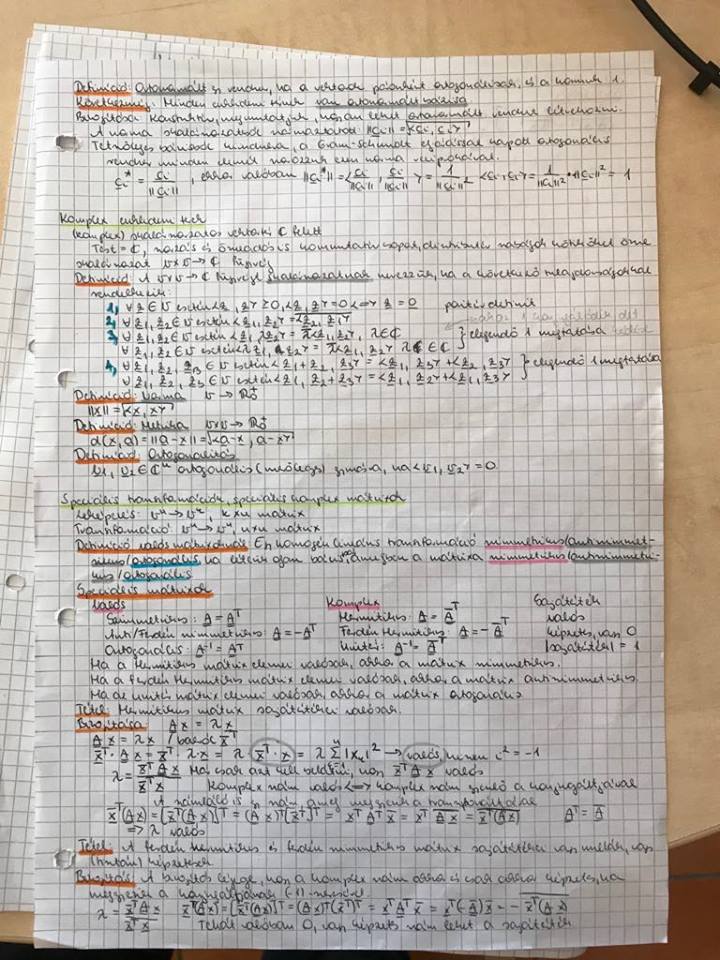 Definíció: Ortonormált a rendszer, ha a vektorok páronként ortogonálisak, és a normájuk 1.
Következmény: Minden euklideszi térnek van ortonormált bázisa
Bizonyítása: Konstruktív, megmutatjuk, hogyan lehet ortonormált rendszert létrehozni.
A norma skalárszorzatból származtatott: ||c_i|| = √<c_i, c_i>
Tetszőleges bázisból kiindulva, a Gram-Schmidt eljárással kapott ortogonális
rendszer minden elemét szorozzuk meg norma reciprokával.
c_i* = c_i / ||c_i|| , ekkor valóban ||c_i*|| = <c_i / ||c_i||, c_i / ||c_i||> = 1 / ||c_i||² <c_i, c_i> = 1 / ||c_i||² · ||c_i||² = 1
Komplex euklideszi tér
(komplex) skalárszorzatos vektortér ℂ felett
Test = ℂ, szorzás és összeadás is kommutatív csoport, disztributív
skalárszorzat v×v → ℂ függvény
Definíció: A v×v → ℂ függvényt skalárszorzatnak nevezzük, ha a következő tulajdonságokkal
rendelkezik:
1, ∀ z ∈ V esetén <z, z> ≥ 0, <z, z> = 0 <=> z = 0 pozitív definit
2, ∀ z1, z2 ∈ V esetén <z1, z2> = <z2, z1>
3, ∀ z1, z2 ∈ V esetén <z1, λz2> = λ<z1, z2>, λ ∈ ℂ } elegendő 1 megtartása
∀ z1, z2 ∈ V esetén <λz1, z2> = λ̄<z1, z2> λ ∈ ℂ
4, ∀ z1, z2, z3 ∈ V esetén <z1 + z2, z3> = <z1, z3> + <z2, z3> } elegendő 1 megtartása
∀ z1, z2, z3 ∈ V esetén <z1, z2 + z3> = <z1, z2> + <z1, z3>
Definíció: Norma v → ℝ₀⁺
||x|| = √<x, x>
Definíció: Metrika v×v → ℝ₀⁺
d(x, a) = ||a - x|| = √<a - x, a - x>
Definíció: Ortogonalitás
v1, v2 ∈ ℂⁿ ortogonális (merőleges) egymásra, ha <v1, v2> = 0
Speciális transzformációk, speciális komplex mátrixok
Leképezés: vⁿ → vᵏ, k×n mátrix
Transzformáció vⁿ → vⁿ, n×n mátrix
Definíció valós mátrixoknál: Egy homogén lineáris transzformáció szimmetrikus/antiszimmet-
rikus/ortogonális, ha létezik olyan bázis, amelyben a mátrixa szimmetrikus/antiszimmetri-
kus/ortogonális
Speciális mátrixok
Valós Komplex Sajátérték
Szimmetrikus: A = Aᵀ Hermitikus: A = Āᵀ valós
Anti/Ferdén szimmetrikus: A = -Aᵀ Ferdén Hermitikus: A = -Āᵀ képzetes, vagy 0
Ortogonális: A⁻¹ = Aᵀ Unitér: A⁻¹ = Āᵀ |sajátérték| = 1
Ha a Hermitikus mátrix elemei valósak, akkor a mátrix szimmetrikus.
Ha a ferdén Hermitikus mátrix elemei valósak, akkor a mátrix antiszimmetrikus.
Ha az unitér mátrix elemei valósak, akkor a mátrix ortogonális
Tétel: Hermitikus mátrix sajátértékei valósak.
Bizonyítása: A x = λ x
A x = λ x / balról x̄ᵀ
x̄ᵀ · A x = x̄ᵀ · λ x = λ x̄ᵀ · x = λ Σ |x_k|² → valós, hiszen i² = -1
λ = x̄ᵀ A x / x̄ᵀ x Már csak azt kell belátni, hogy x̄ᵀ A x valós
Komplex szám valós <=> komplex szám egyenlő a konjugáltjával
A számláló is szám, amely megegyezik a transzponáltjával
x̄ᵀ(A x) = [x̄ᵀ(A x)]ᵀ = (A x)ᵀ[x̄ᵀ]ᵀ = xᵀ Aᵀ x̄ = xᵀ Ā x̄ = x̄ᵀ(A x) Aᵀ = Ā
=> λ valós
Tétel: A ferdén Hermitikus és ferdén szimmetrikus mátrix sajátértékei vagy nullák, vagy
(tisztán) képzetesek
Bizonyítás: A bizonyítás lényege, hogy a komplex szám akkor és csak akkor képzetes, ha
megegyezik a konjugáltjának (-1)-szeresével
λ = x̄ᵀ A x / x̄ᵀ x x̄ᵀ(A x) = [x̄ᵀ(A x)]ᵀ = (A x)ᵀ(x̄ᵀ)ᵀ = xᵀ Aᵀ x̄ = xᵀ(-Ā) x̄ = - x̄ᵀ(A x)
Tehát valóban 0, vagy képzetes szám lehet a sajátérték